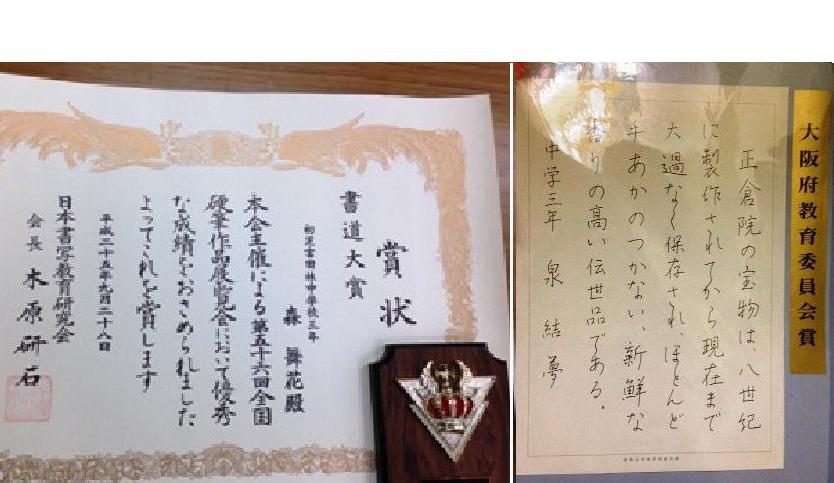 賞状
書道大賞
初芝富田林中学校三年
森 舞花殿
本会主催による第五十六回全国
硬筆作品展覧会において優秀
な成績をおさめられました
よってこれを賞します
平成二十五年九月二十八日
日本書写教育研究会
会長 木原研石
大阪府教育委員会賞
正倉院の宝物は、八世紀
に製作されてから現在まで
大過なく保存され、ほとんど
手あかのつかない、新鮮な
香りの高い伝世品である。
中学三年 泉 結夢